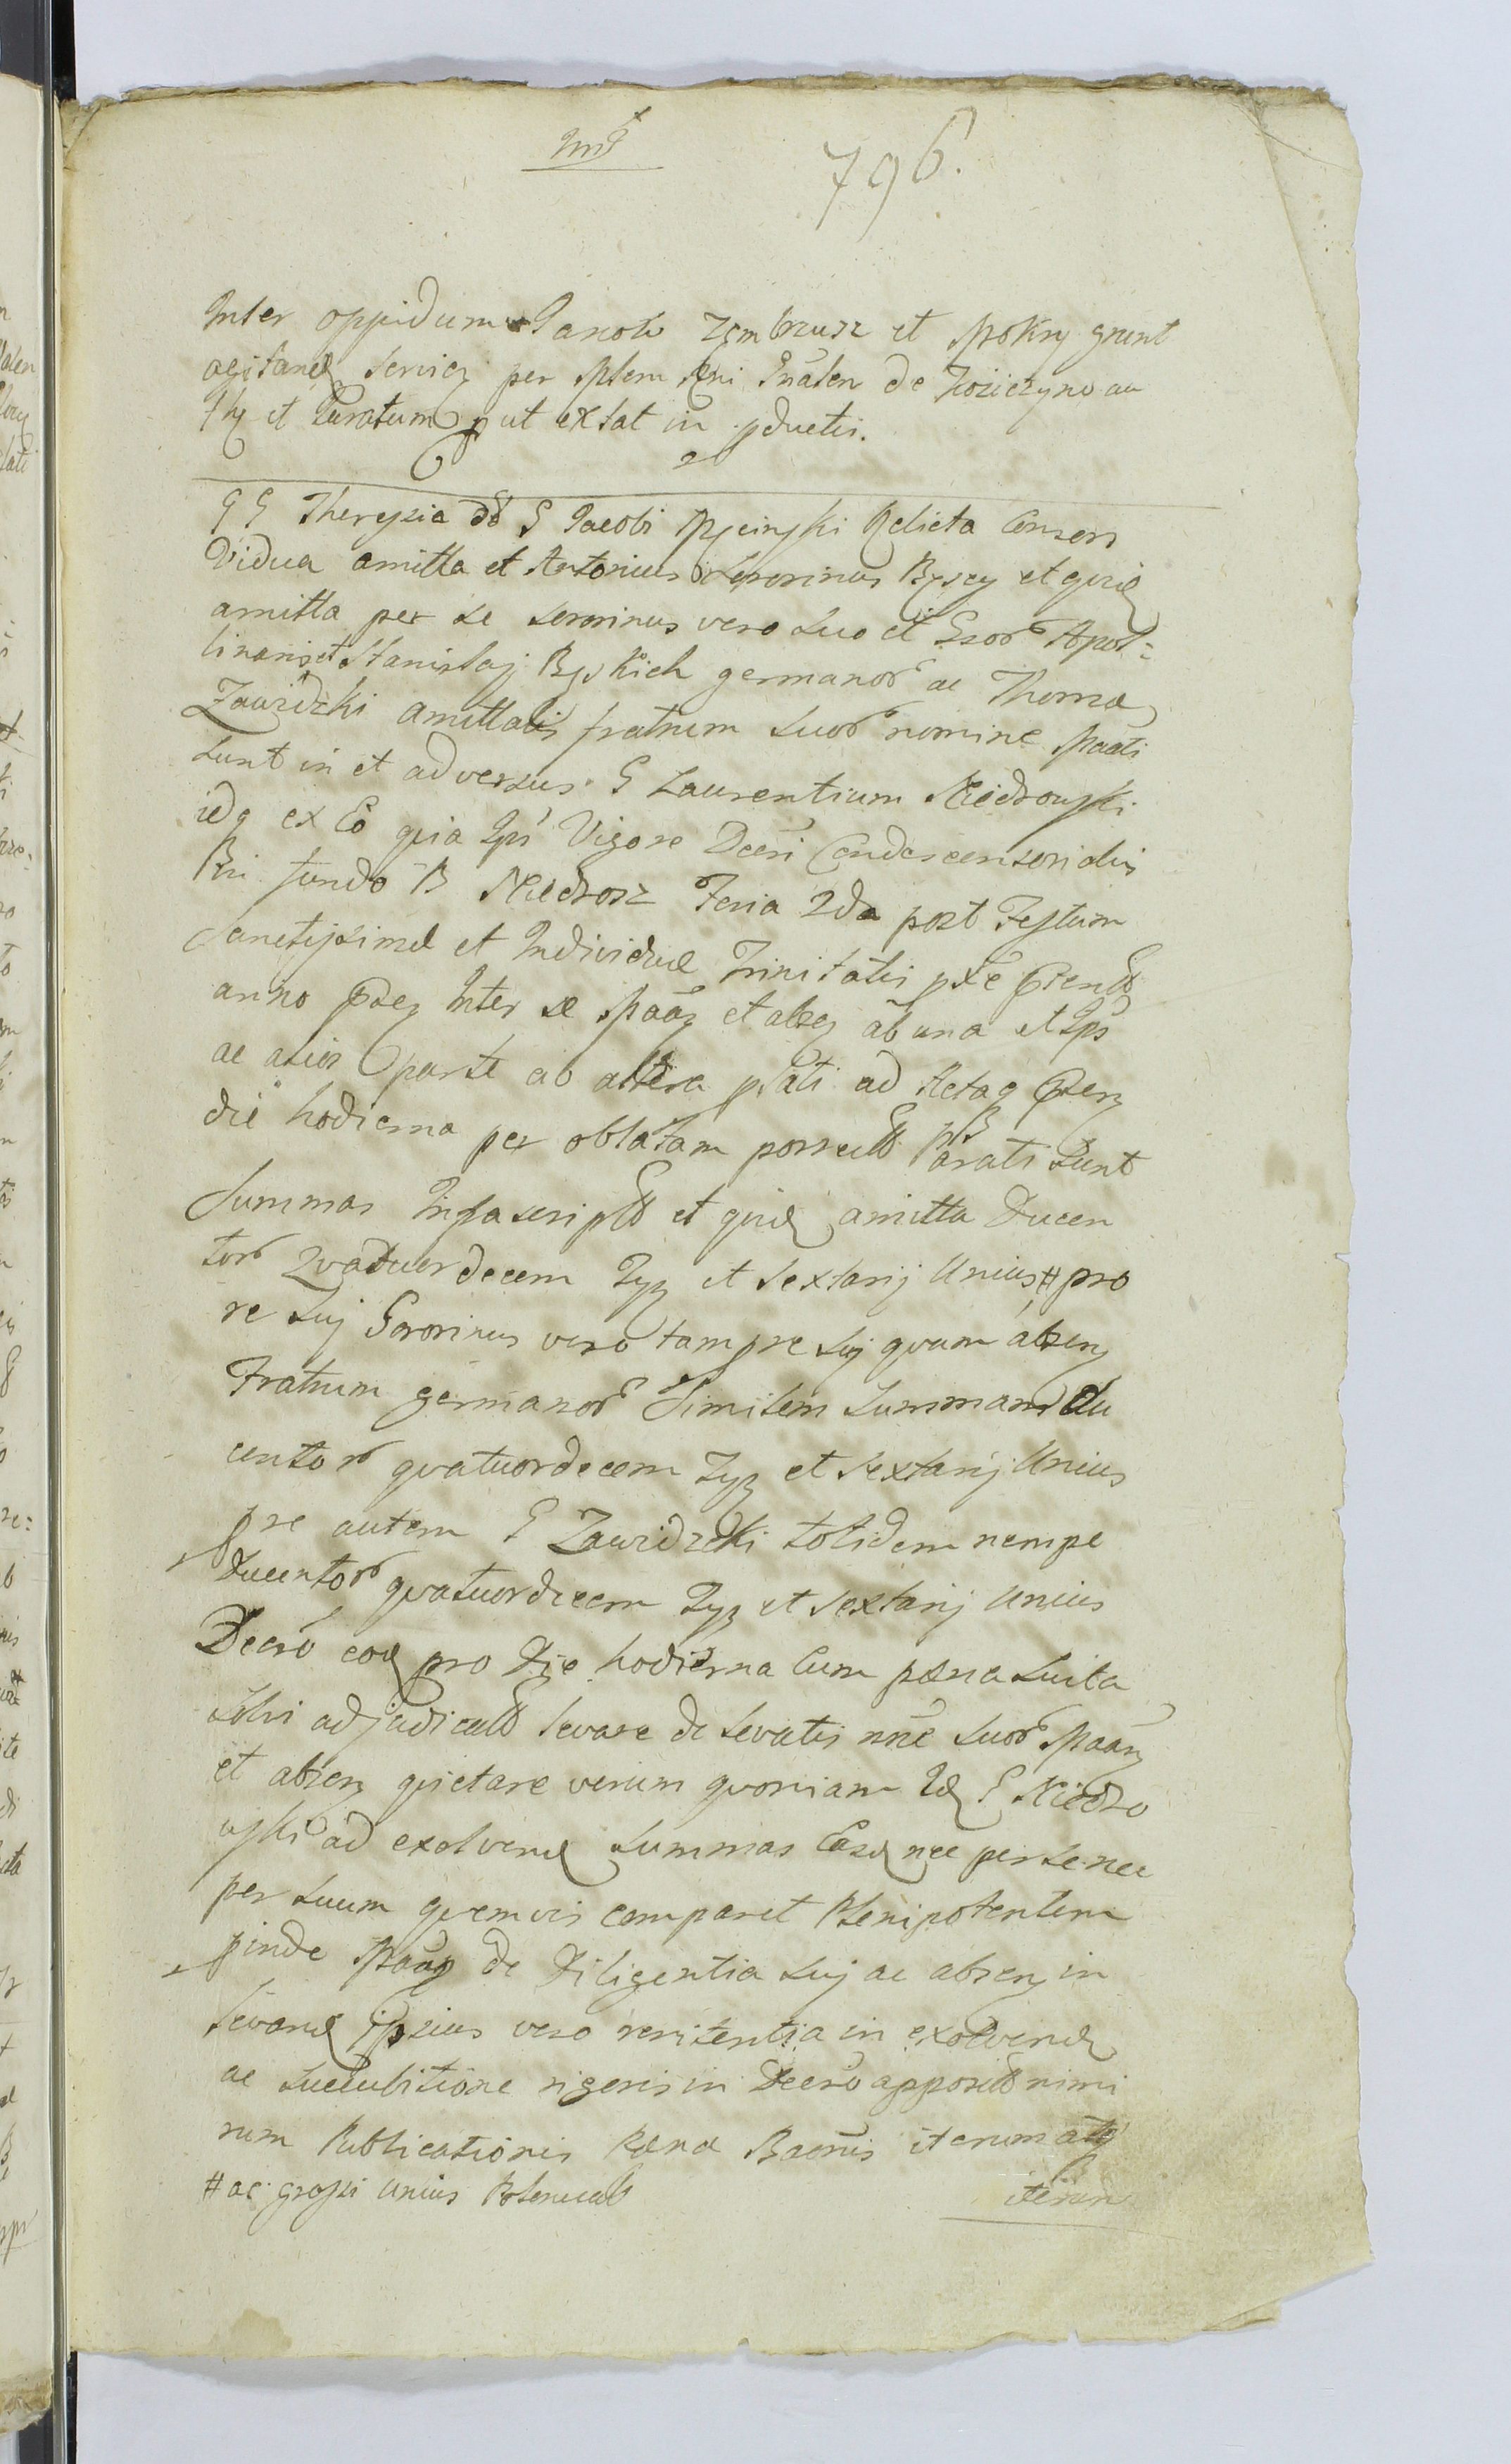 796.
Inter oppidum Janow Zembrusz et Mokry grunt
agitand servien per Mlem Rni Gnalen de Kosiczyno au
then et Juratum put extat in pductis.
G G Theresia Gsi G Jacobi Rzeczyski Relicta Consors
Vidua amitta et Antonius Sororinus Byscy et quid
amitta per se sororinus vero suo et Gsor Apol=
linaris et Stanislaj Byskich germanor ac Thoma
Zawidzki amittalis fratrum suor nomine Maati
sunt in et adversus G Laurentium Niedrowski
idq ex Eo quia Ipsi Vigore Decri Condescensorialis
Bni fundo B Niedrosz Feria 2da post Festum
Sanctissimæ et Individuæ Trinitatis pxe prtento
anno psen Inter se Maan et absen ab una et Ips
ac alios parte ab altera plati ad Actaq psen
die hodierna per oblatam porrecto parati sunt
Summas Infrascriptas et quid amitta Ducen
tor Quatuordecem Tyz et sextarij Unius # pro
re suj Sororinus vero tam pre suj quam absen
Fratrum germanor Similem Summam du
centor quatuordecem Tyz et sextarij Unius
pre autem G Zawidzki totidem nempe
Ducentor quatuordecem Tyz et sextarij Unius
Decro eod pro die hodierna Cum pæna luita
solvi adjudicatas levare de levatis nne suor Maan
et absen quietare verum quoniam Id G Niedro
wski ad exolvend summas Easd nec per se nec
per suum quemvis comparet Plenipotentem
pinde Maan de Diligentia suj ac absen in
levand ipsius vero renitentia in exolvend
ac succubitione rigoris in Decro apposito nimi
rum Publicationis Pænæ Baonis iterum atq
# ac grossi unius Polonical
iterum